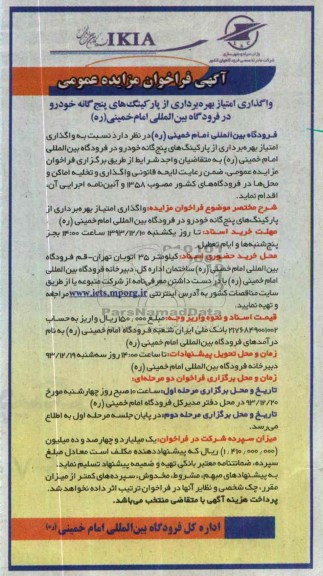 IKIA
آگهی فراخوان مزایده عمومی
واگذاری امتیاز بهره‌برداری از پارکینگ‌های پنج‌گانه خودرو
در فرودگاه بین‌المللی امام‌خمینی(ره)
فرودگاه بین‌المللی امام خمینی (ره) در نظر دارد نسبت به واگذاری
امتیاز بهره‌برداری از پارکینگ‌های پنج‌گانه خودرو در فرودگاه بین‌المللی
امام خمینی (ره) به متقاضیان واجد شرایط از طریق برگزاری فراخوان
مزایده عمومی، ضمن رعایت لایحه قانونی واگذاری و تخلیه اماکن و
محل‌ها در فرودگاه‌های کشور مصوب ۱۳۵۸ و آئین‌نامه اجرایی آن،
اقدام نماید.
شرح مختصر موضوع فراخوان مزایده: واگذاری امتیاز بهره‌برداری از
پارکینگ‌های پنج‌گانه خودرو در فرودگاه بین المللی امام خمینی (ره)
مهلت خرید اسناد: تا روز یکشنبه ۱۳۹۳/۱۲/۱۰ ساعت ۱۴:۰۰ بجز
پنج‌شنبه‌ها و ایام تعطیل
محل خرید حضوری اسناد: کیلومتر ۳۵ اتوبان تهران-قم فرودگاه
بین المللی امام خمینی (ره) ساختمان اداره کل، دبیرخانه فرودگاه بین‌المللی
امام خمینی (ره) با در دست داشتن معرفی‌نامه از شرکت متبوعه یا از طریق
سایت مناقصات کشور به آدرس اینترنتی www.iets.mporg.ir مراجعه
و تهیه نمایید
قیمت اسناد و نحوه واریز وجه: مبلغ ۱۵۰,۰۰۰ ریال واریز به حساب
۲۱۷۶۸۴۹۰۰۱۰۰۲ بانک ملی ایران شعبه فرودگاه امام خمینی (ره) به نام
درآمدهای فرودگاه بین‌المللی امام خمینی (ره)
زمان و محل تحویل پیشنهادات: تا ساعت ۱۴:۰۰ روز سه‌شنبه ۹۳/۱۲/۱۹
دبیرخانه فرودگاه بین المللی امام خمینی (ره)
زمان و محل برگزاری فراخوان دو مرحله‌ای:
تاریخ و محل برگزاری مرحله اول: ساعت ۱۰ صبح روز چهارشنبه مورخ
۹۳/۱۲/۲۰ در محل دفتر مدیرکل فرودگاه امام خمینی (ره)
تاریخ و محل برگزاری مرحله دوم: در پایان جلسه مرحله اول به اطلاع
می‌رسد.
میزان سپرده شرکت در فراخوان: یک میلیارد و چهارصد و ده میلیون
(۱,۴۱۰,۰۰۰,۰۰۰) ریال که پیشنهاددهنده مکلف است معادل مبلغ
سپرده، ضمانتنامه معتبر بانکی تهیه و ضمیمه پیشنهاد تسلیم نماید.
به پیشنهادهای مبهم، مشروط، مخدوش، سپرده‌های کمتر از میزان
مقرر، چک شخصی و نظایر آنها در فراخوان ترتیب اثر داده نخواهد شد.
پرداخت هزینه آگهی با متقاضی منتخب می‌باشد.
اداره کل فرودگاه بین‌المللی امام خمینی (ره)
ParsNamadData